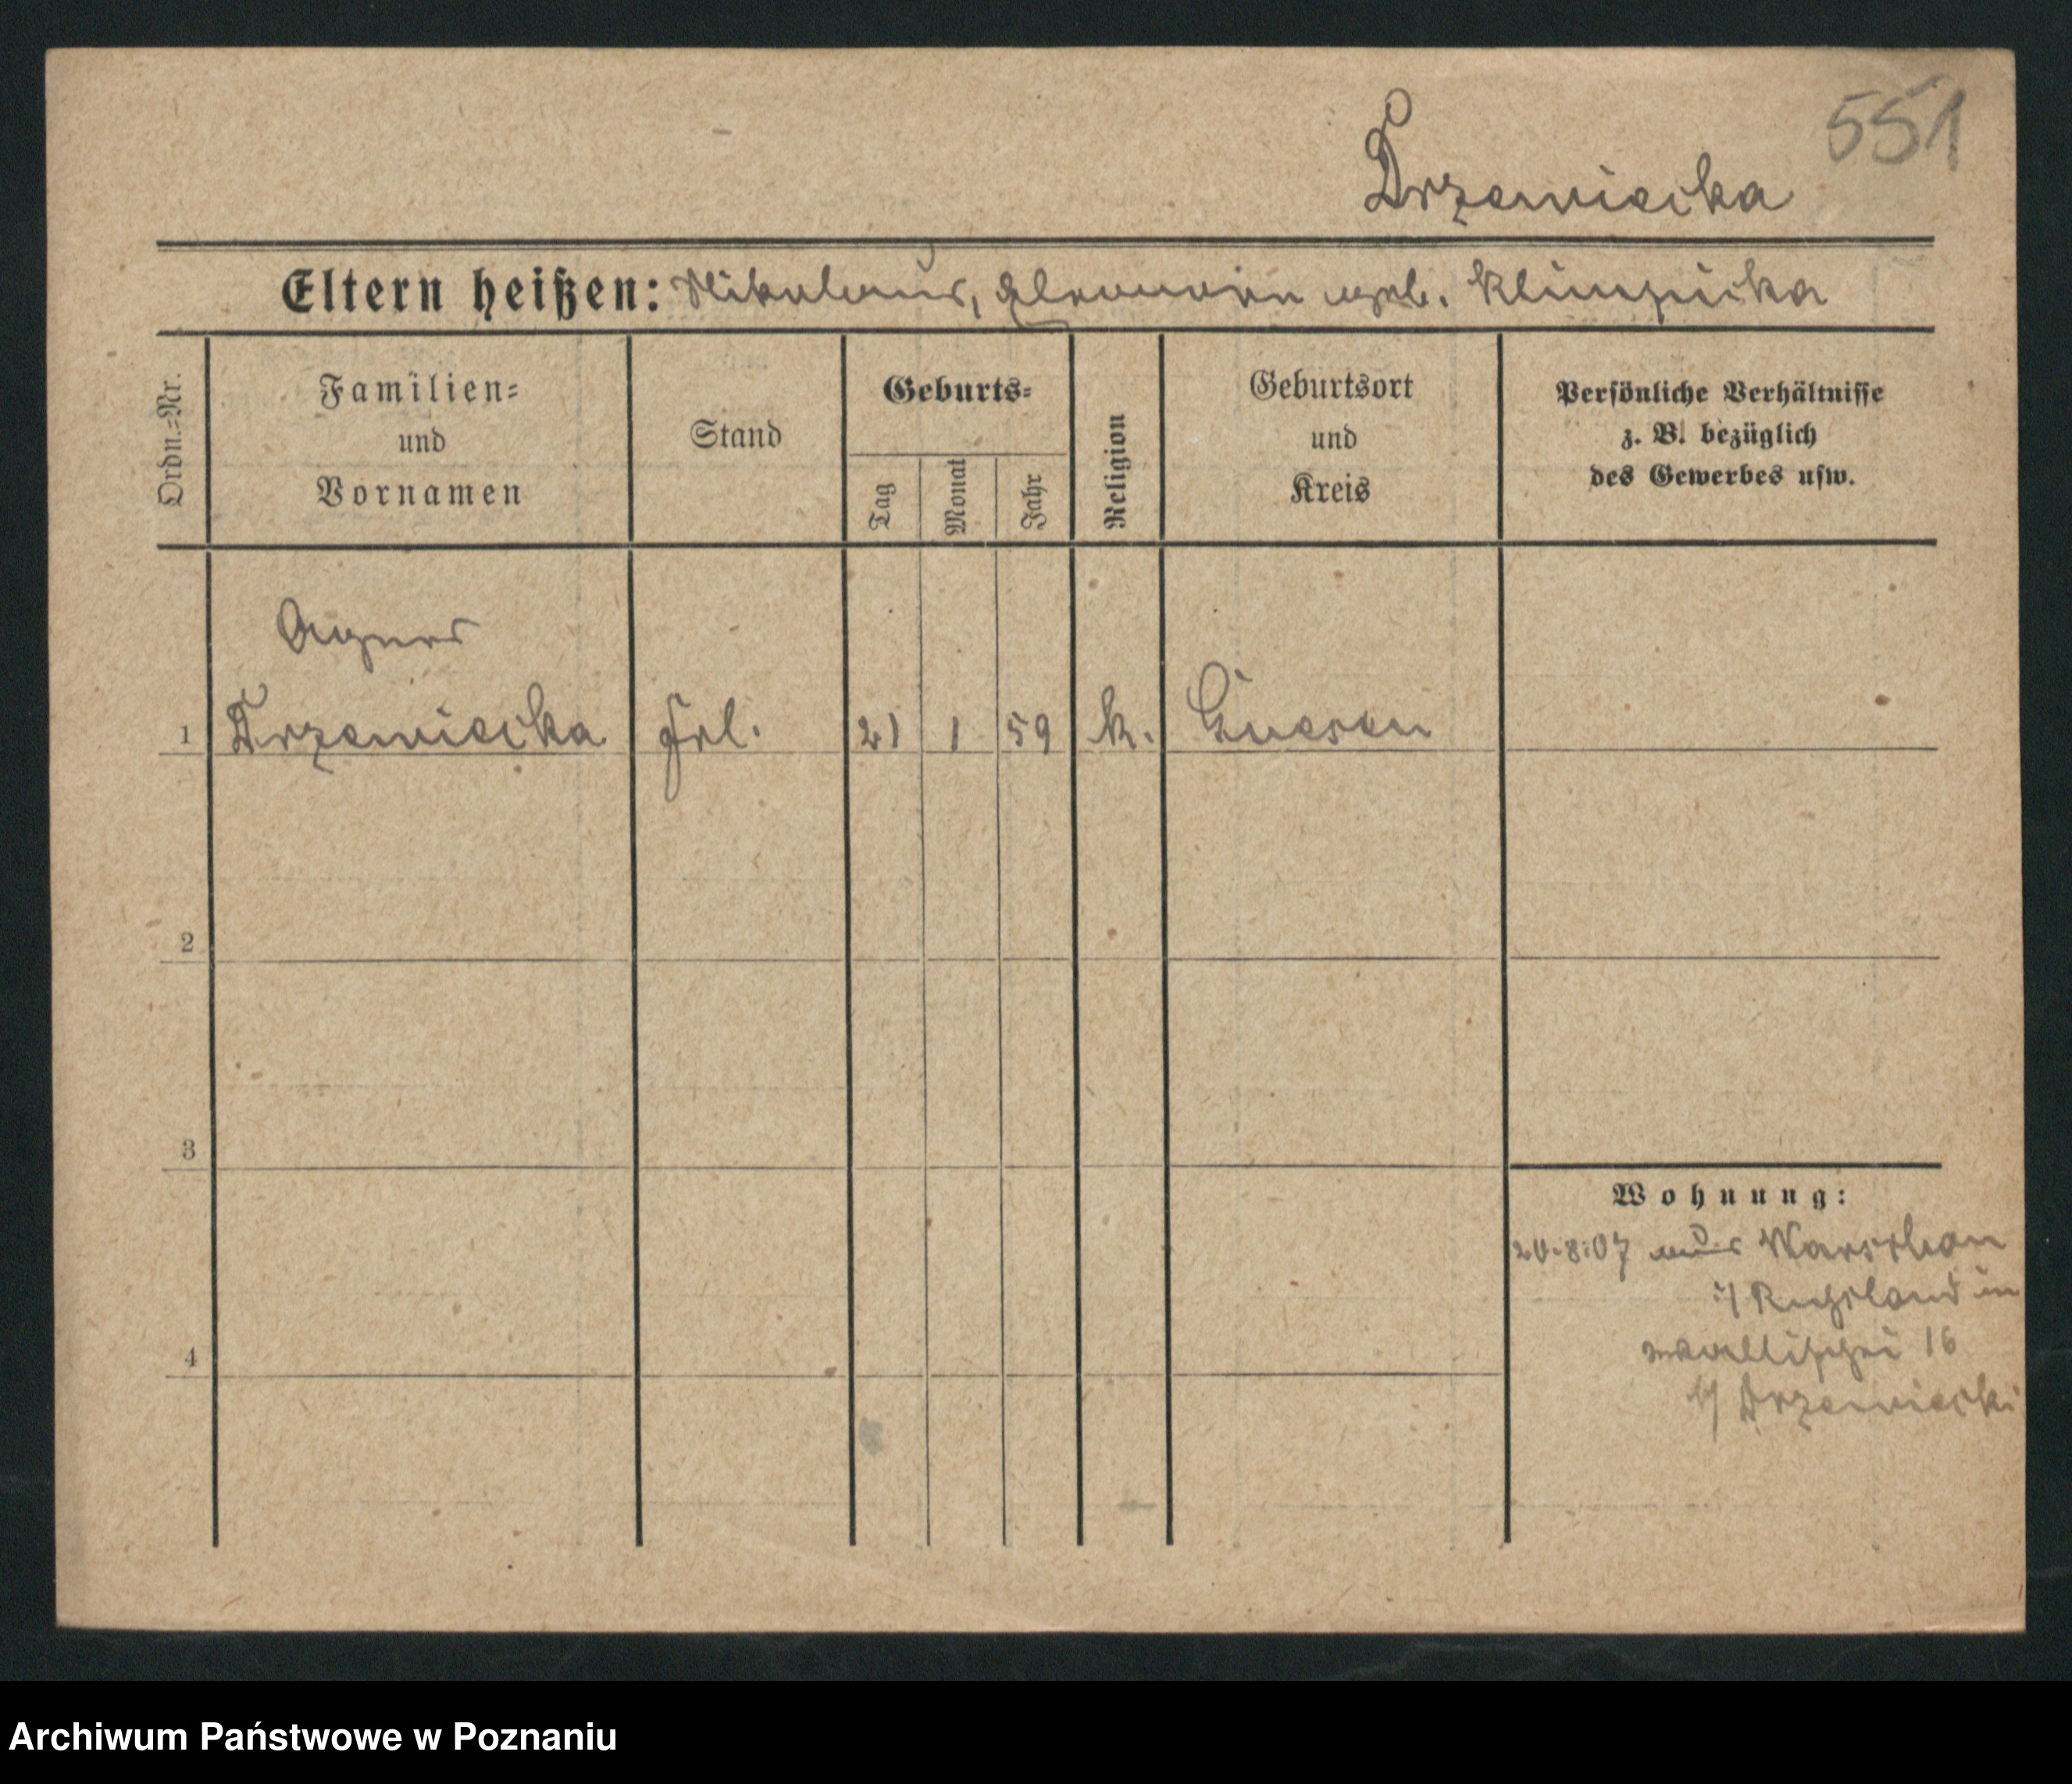 551
Drzewiecka
Eltern heißen: Nikolaus, geb.
Ordn.=Nr.
Familien=
und
Vornamen
Stand
Geburts=
Tag
Monat
Jahr
Religion
Geburtsort
und
Kreis
Persönliche Verhältnisse
z. B. bezüglich
des Gewerbes usw.
Agnes
1 Drzewiecka Frl. 21 1 59 k. Gnesen
2
3
Wohnung:
20.8.07 aus Warschau
i/ Rußland in
4
Wallischei 16
b/ Drzewiecki
Archiwum Państwowe w Poznaniu